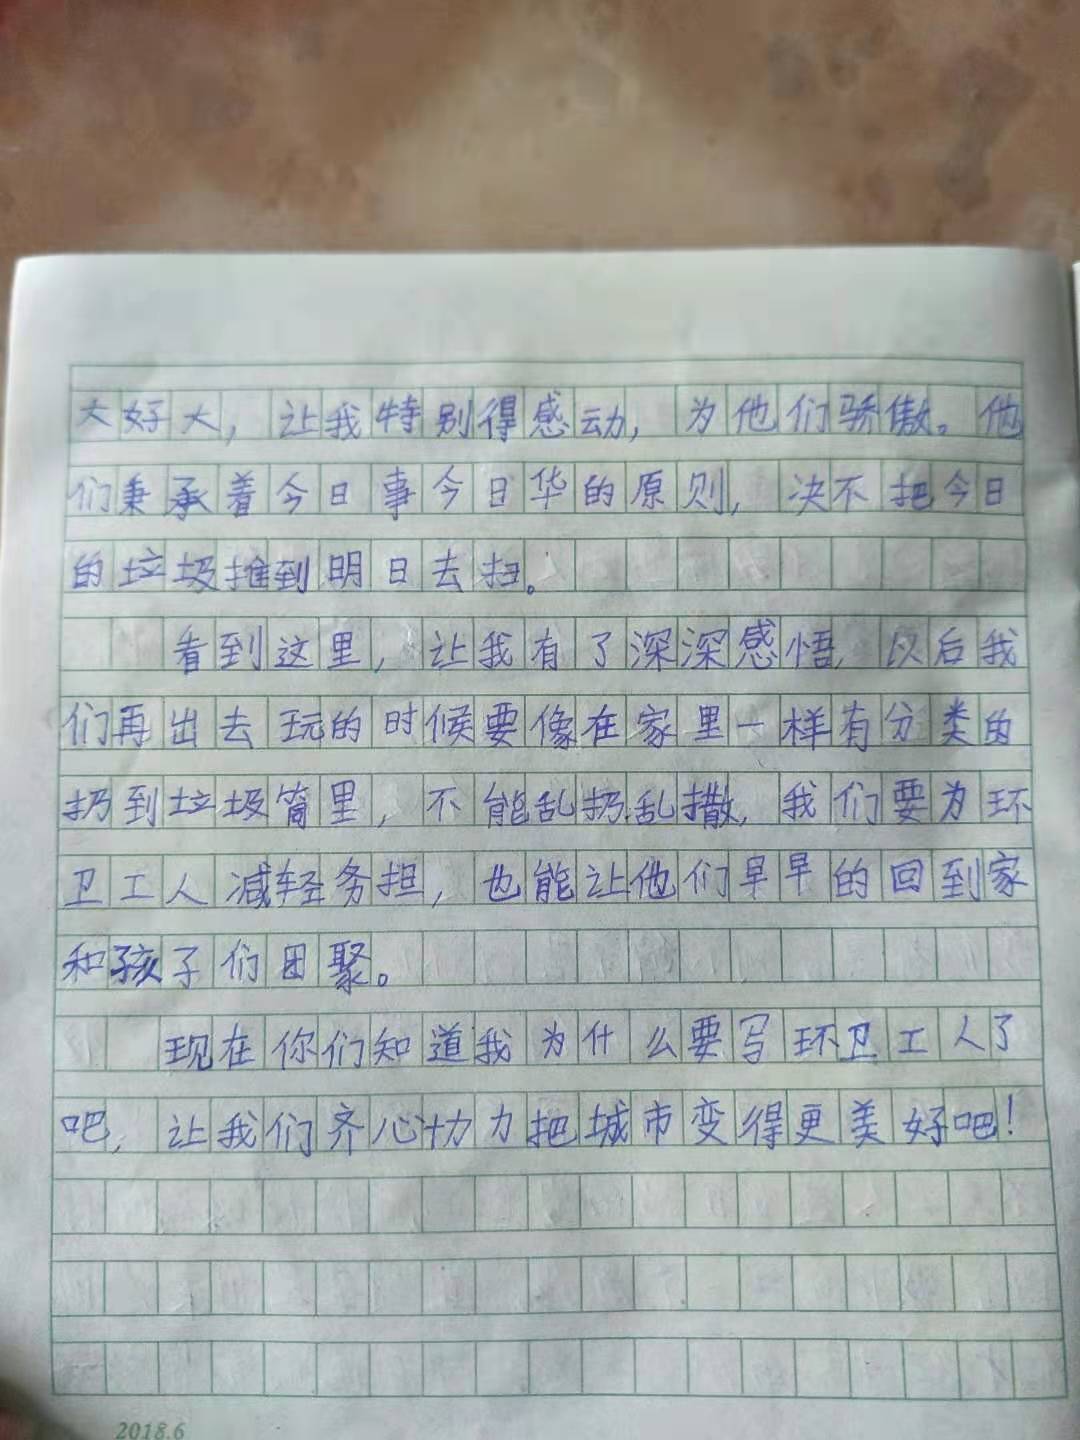 大好大，让我特别得感动，为他们骄傲。他
们秉承着今日事今日华的原则，决不把今日
的垃圾推到明日去扫。
看到这里，让我有了深深感悟，以后我
们再出去玩的时候要像在家里一样有分类的
扔到垃圾筒里，不能乱扔乱撒，我们要为环
卫工人减轻务担，也能让他们早早的回到家
和孩子们团聚。
现在你们知道我为什么要写环卫工人了
吧，让我们齐心协力把城市变得更美好吧！
2018.6